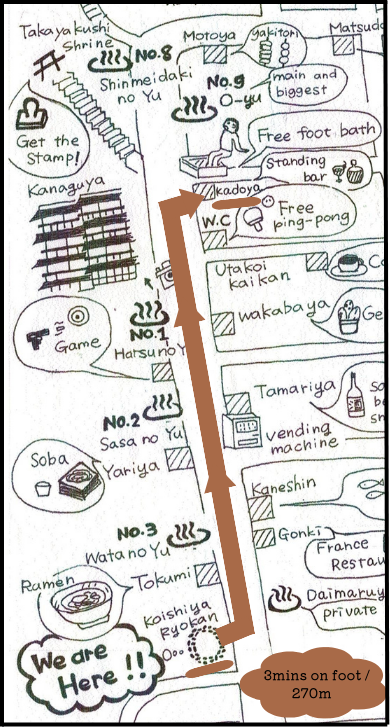 Takayakushi
Shrine
No.8
Shinmeidaki
no Yu
Motoya
yakitori
Matsuda
No.9
O-yu
main and
biggest
Get the
Stamp!
Free foot bath
Standing
bar
Kadoya
Kanaguya
W.C
Free
ping-pong
Utakoi
kaikan
No.1
Hatsuno Y
Game
wakabaya
Ge
No.2
Sasa no Yu
Tamariya
vending
machine
Soba
Yariya
Kaneshin
No.3
Watano Yu
Gonki
France
Restau
Ramen
Tokumi
Daimaruy
private
Koishiya
Ryokan
We are
Here!!
3mins on foot /
270m